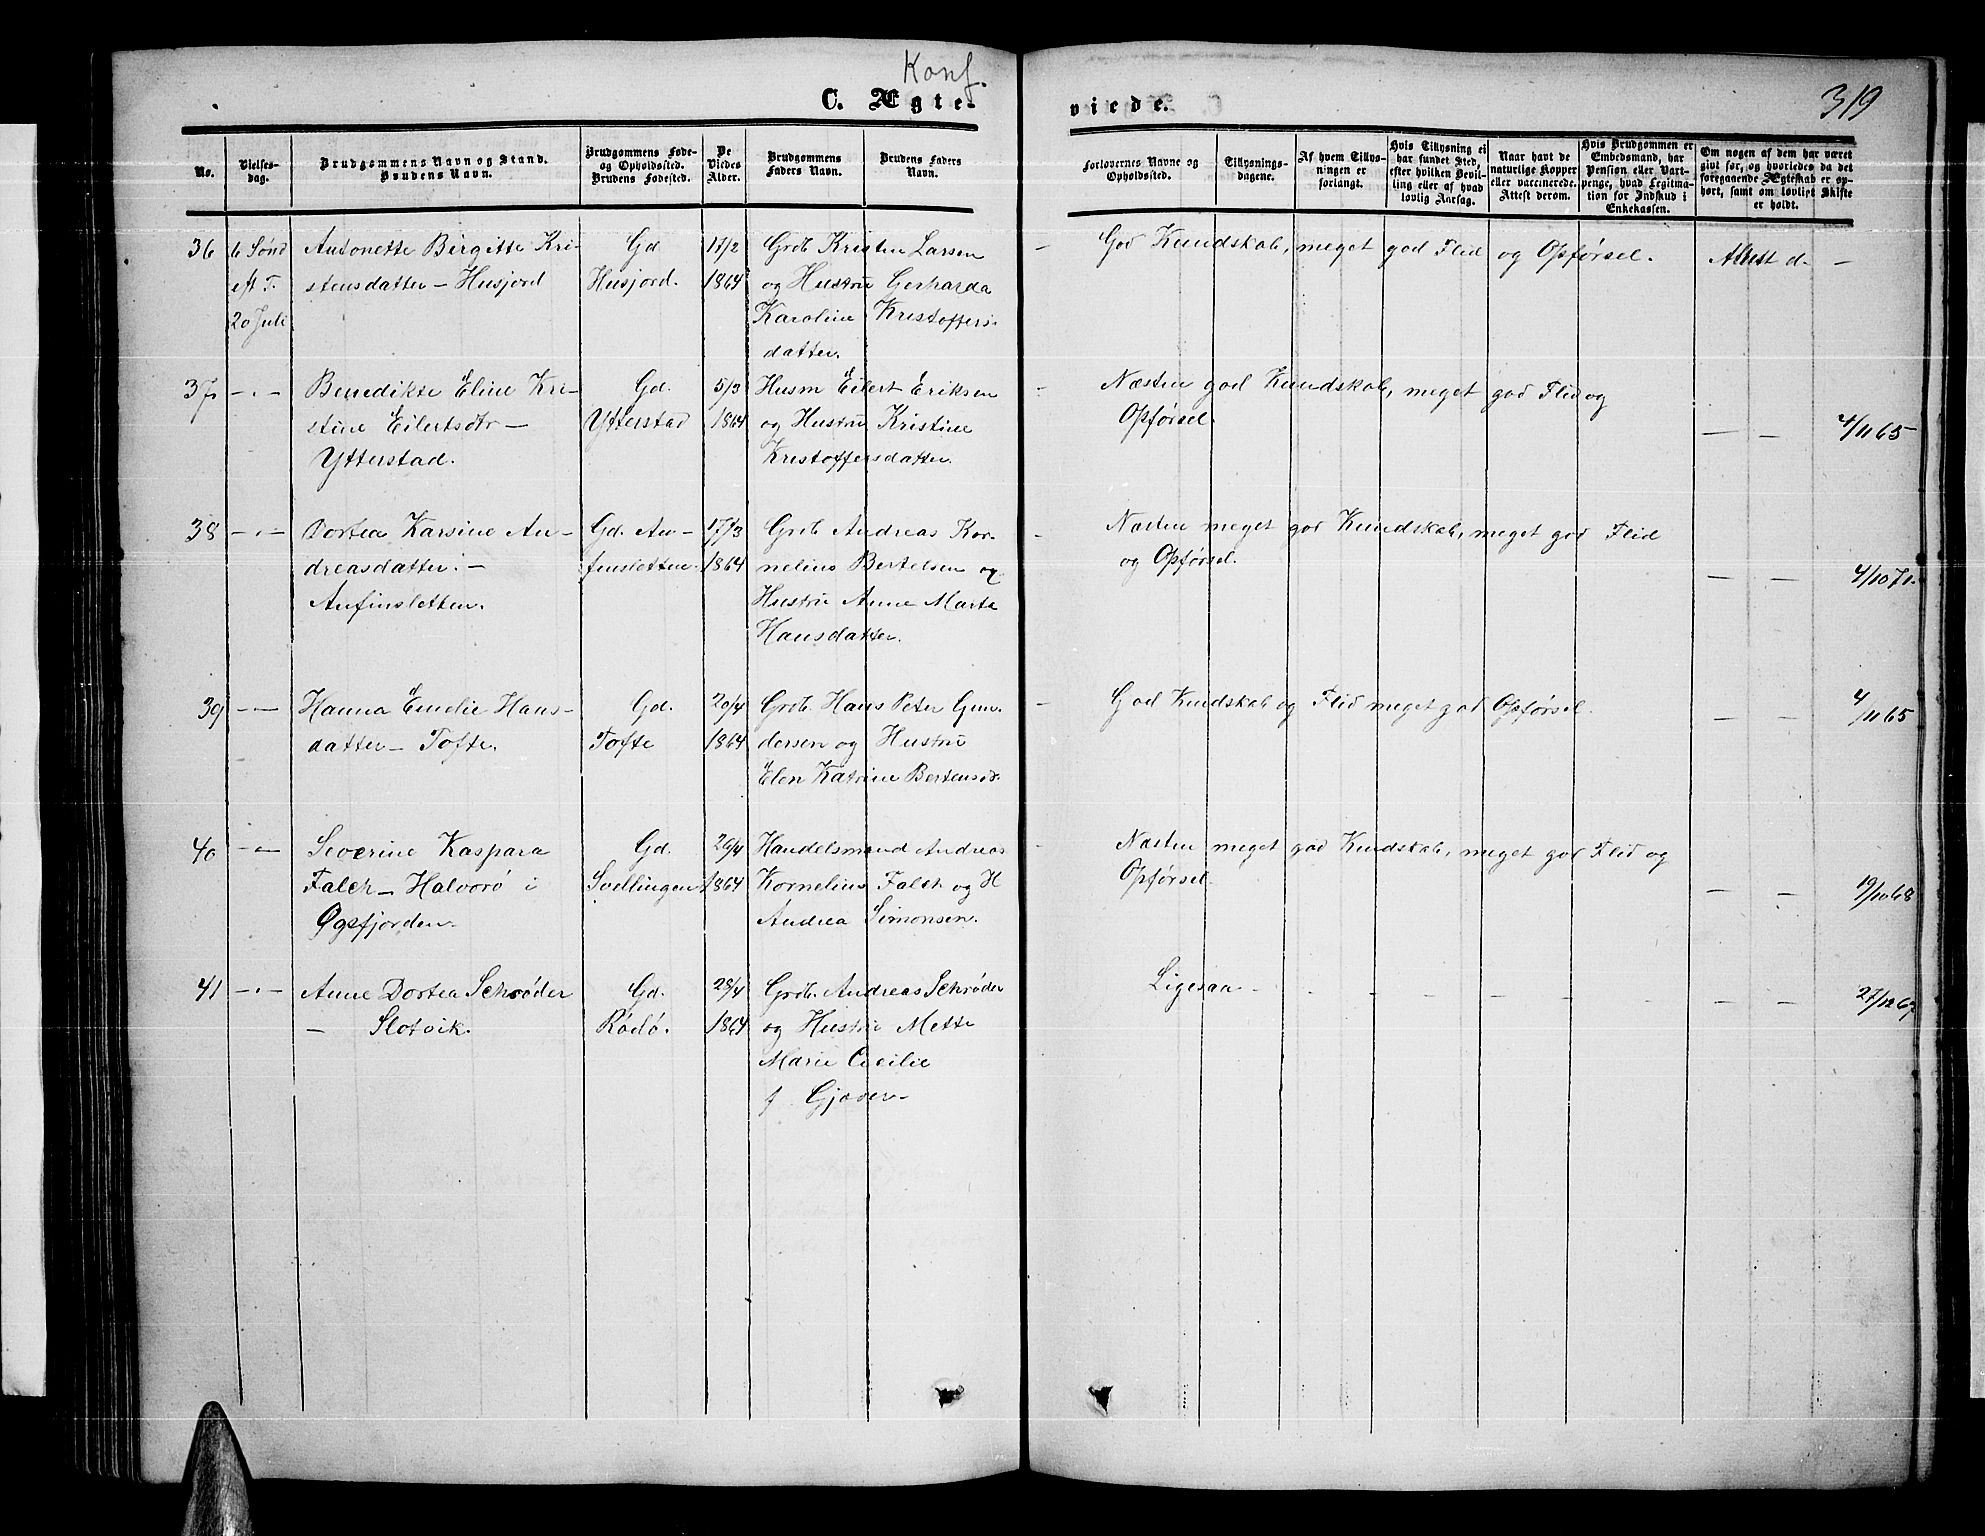 Konf.
C. Ægte-
viede.
319
No.
Vielses-
dag.
Brudgommens Navn og Stand.
Brudens Navn.
Brudgommens Føde-
og Opholdssted.
Brudens Fødested.
De
Viedes
Alder.
Brudgommens
Faders Navn.
Brudens Faders
Navn.
Forlovernes Navne og
Opholdssted.
Tillysnings-
dagene.
Af hvem Tillys-
ningen er
forlangt.
Hvis Tillysning ei
har fundet Sted,
efter hvilken Bevil-
ling eller af hvad
lovlig Aarsag.
Naar havt de
naturlige Kopper
eller vaccinerede.
Attest derom.
Hvis Brudgommen er
Embedsmand, har
Pension eller Vart-
penge, hvad Legitima-
tion for Indskud i
Enkekassen.
Om nogen af dem har været
givt før, og hvorledes da det
foregaaende Ægteskab er op-
hørt, samt om lovligt Skifte
er holdt.
36
6 Sønd
eft T.
20 Juli
Antonette Birgitte Kri-
stensdatter - Husjord
Gd
Husjord.
17/2
1864
Grdb Kristen Larsen
og Hustru Gerharda
Karoline Kristoffers-
datter.
- God Kundskab, meget god Flid og Opførsel. Attest d. -
37 - . -
Benedikte Eline Kri-
stine Eilertsdtr -
Ytterstad.
Gd.
Ytterstad
5/3
1864
Husm Eilert Eriksen
og Hustru Kristine
Kristoffersdatter.
- Næsten god Kundskab, meget god Flid og
Opførsel.
- - 4/11 65
38 - . -
Dortea Karsine An-
dreasdatter. -
Anfinsletten.
Gd. An-
finsletten.
17/3
1864
Grdb Andreas Kor-
nelius Bertelsen og
Hustru Anne Marta
Hansdatter.
- Næsten meget god Kundskab, meget god Flid
og Opførsel.
- - 4/10 71.
39 - . -
Hanna Emelie Hans-
datter - Tofte.
Gd.
Tofte
20/4
1864
Grdb. Hans Peter Gun-
dersen og Hustru
Elen Katrine Bertensdr.
- God Kundskab og Flid meget god Opførsel.
- - 4/11 65
40 - . -
Severine Kaspara
Falch - Halvorø i
Øgsfjorden.
Gd.
Svellingen
1864
Handelsmand Andreas
Kornelius Falch og H
Andrea Simonsen.
- Næsten meget god Kundskab, meget god Flid og
Opførsel.
- - 19/10 68
41 - . -
Anne Dortea Schrøder
- Slotvik.
Gd.
Rødø.
28/4
1864
Grdb. Andreas Schrøder
og Hustru Mette
Marie Cecilie
f. Gjæver -
Ligesaa - - - - - - - -